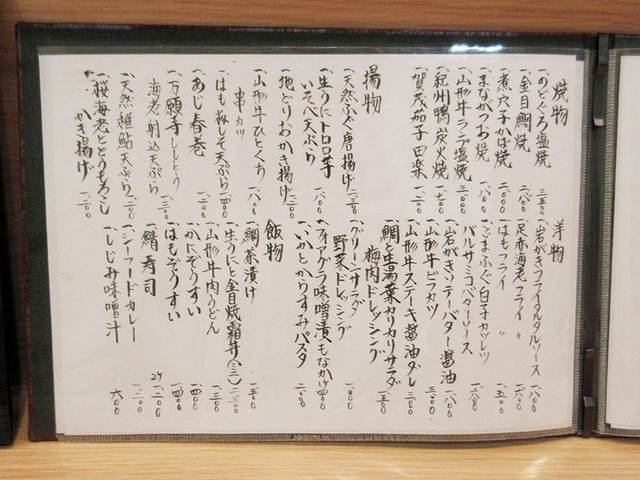 焼物
一、のどぐろ塩焼 三、五〇〇
一、金目鯛焼 二、八〇〇
一、煮穴子かば焼 二、〇〇〇
一、まながつお焼 一、八〇〇
一、山形牛ランプ塩焼 三、〇〇〇
一、紀州鴨炭火焼 一、七〇〇
一、賀茂茄子田楽 一、二〇〇
揚物
一、天然ふぐ唐揚げ
一、生うにトロロ芋
いそべ天ぷら
一、地どりおかき揚げ 一、三〇〇
一、山形牛ひとくち
串カツ 一、八〇〇
一、はも梅しそ天ぷら
一、あじ春巻 一、二〇〇
一、万願寺ししとう
海老射込天ぷら
一、天然稚鮎天ぷら
一、桜海老ととうもろこし
かき揚げ 一、二〇〇
洋物
一、岩がきフライタルタルソース 一、八〇〇
一、足赤海老フライ 〃
一、はもフライ 〃 一、五〇〇
一、ごまふぐ白子カツレツ
バルサミコバターソース 一、六〇〇
一、岩がきソテーバター醤油 一、八〇〇
一、山形牛ビフカツ 三、〇〇〇
一、山形牛ステーキ醤油ダレ 三、〇〇〇
一、鯛と生湯葉カリカリサラダ
梅肉ドレッシング 一、五〇〇
一、グリーンサラダ
野菜ドレッシング 一、〇〇〇
一、フォアグラ味噌漬もなか
一、いかとからすみパスタ 二、〇〇〇
飯物
一、鯛茶漬け 一、五〇〇
一、生うにと金目焼霜丼(ミニ)
一、山形牛肉うどん 一、三〇〇
一、かにぞうすい 一、四〇〇
一、はもぞうすい 一、四〇〇
一、鯖寿司 2ケ 一、二〇〇
一、シーフードカレー 一、二〇〇
一、しじみ味噌汁 六〇〇